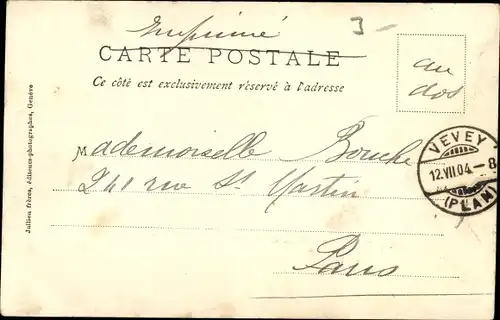 Imprimé
3-
CARTE POSTALE
Ce côté est exclusivement réservé à l'adresse
au
dos
Mademoiselle Bouche
241 rue St Martin
Paris
VEVEY
12.VII.04.-8
(PLAN)
Jullien frères, éditeurs-photographes, Genève